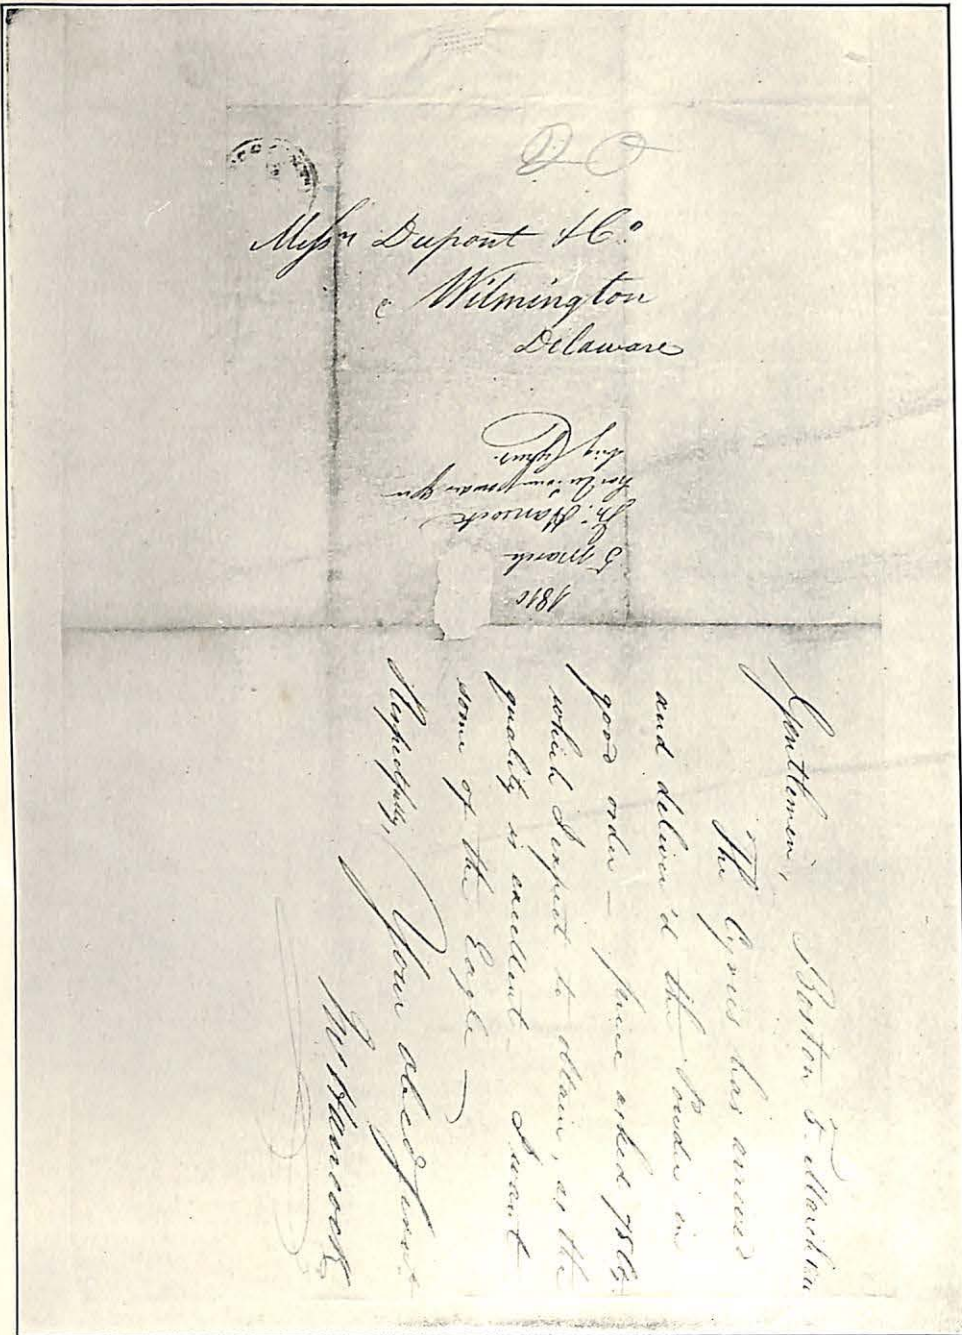 Messrs Dupont & Co
Wilmington
Delaware
1810
5 march
Hancock
Gentlemen, Boston 5. March
The Cyrus has arrived
and deliver'd the Powder in
good order — price asked
which I expect to obtain, as the
quality is excellent I want
some of the Eagle —
Respectfully, Your obed Servt
Hancock